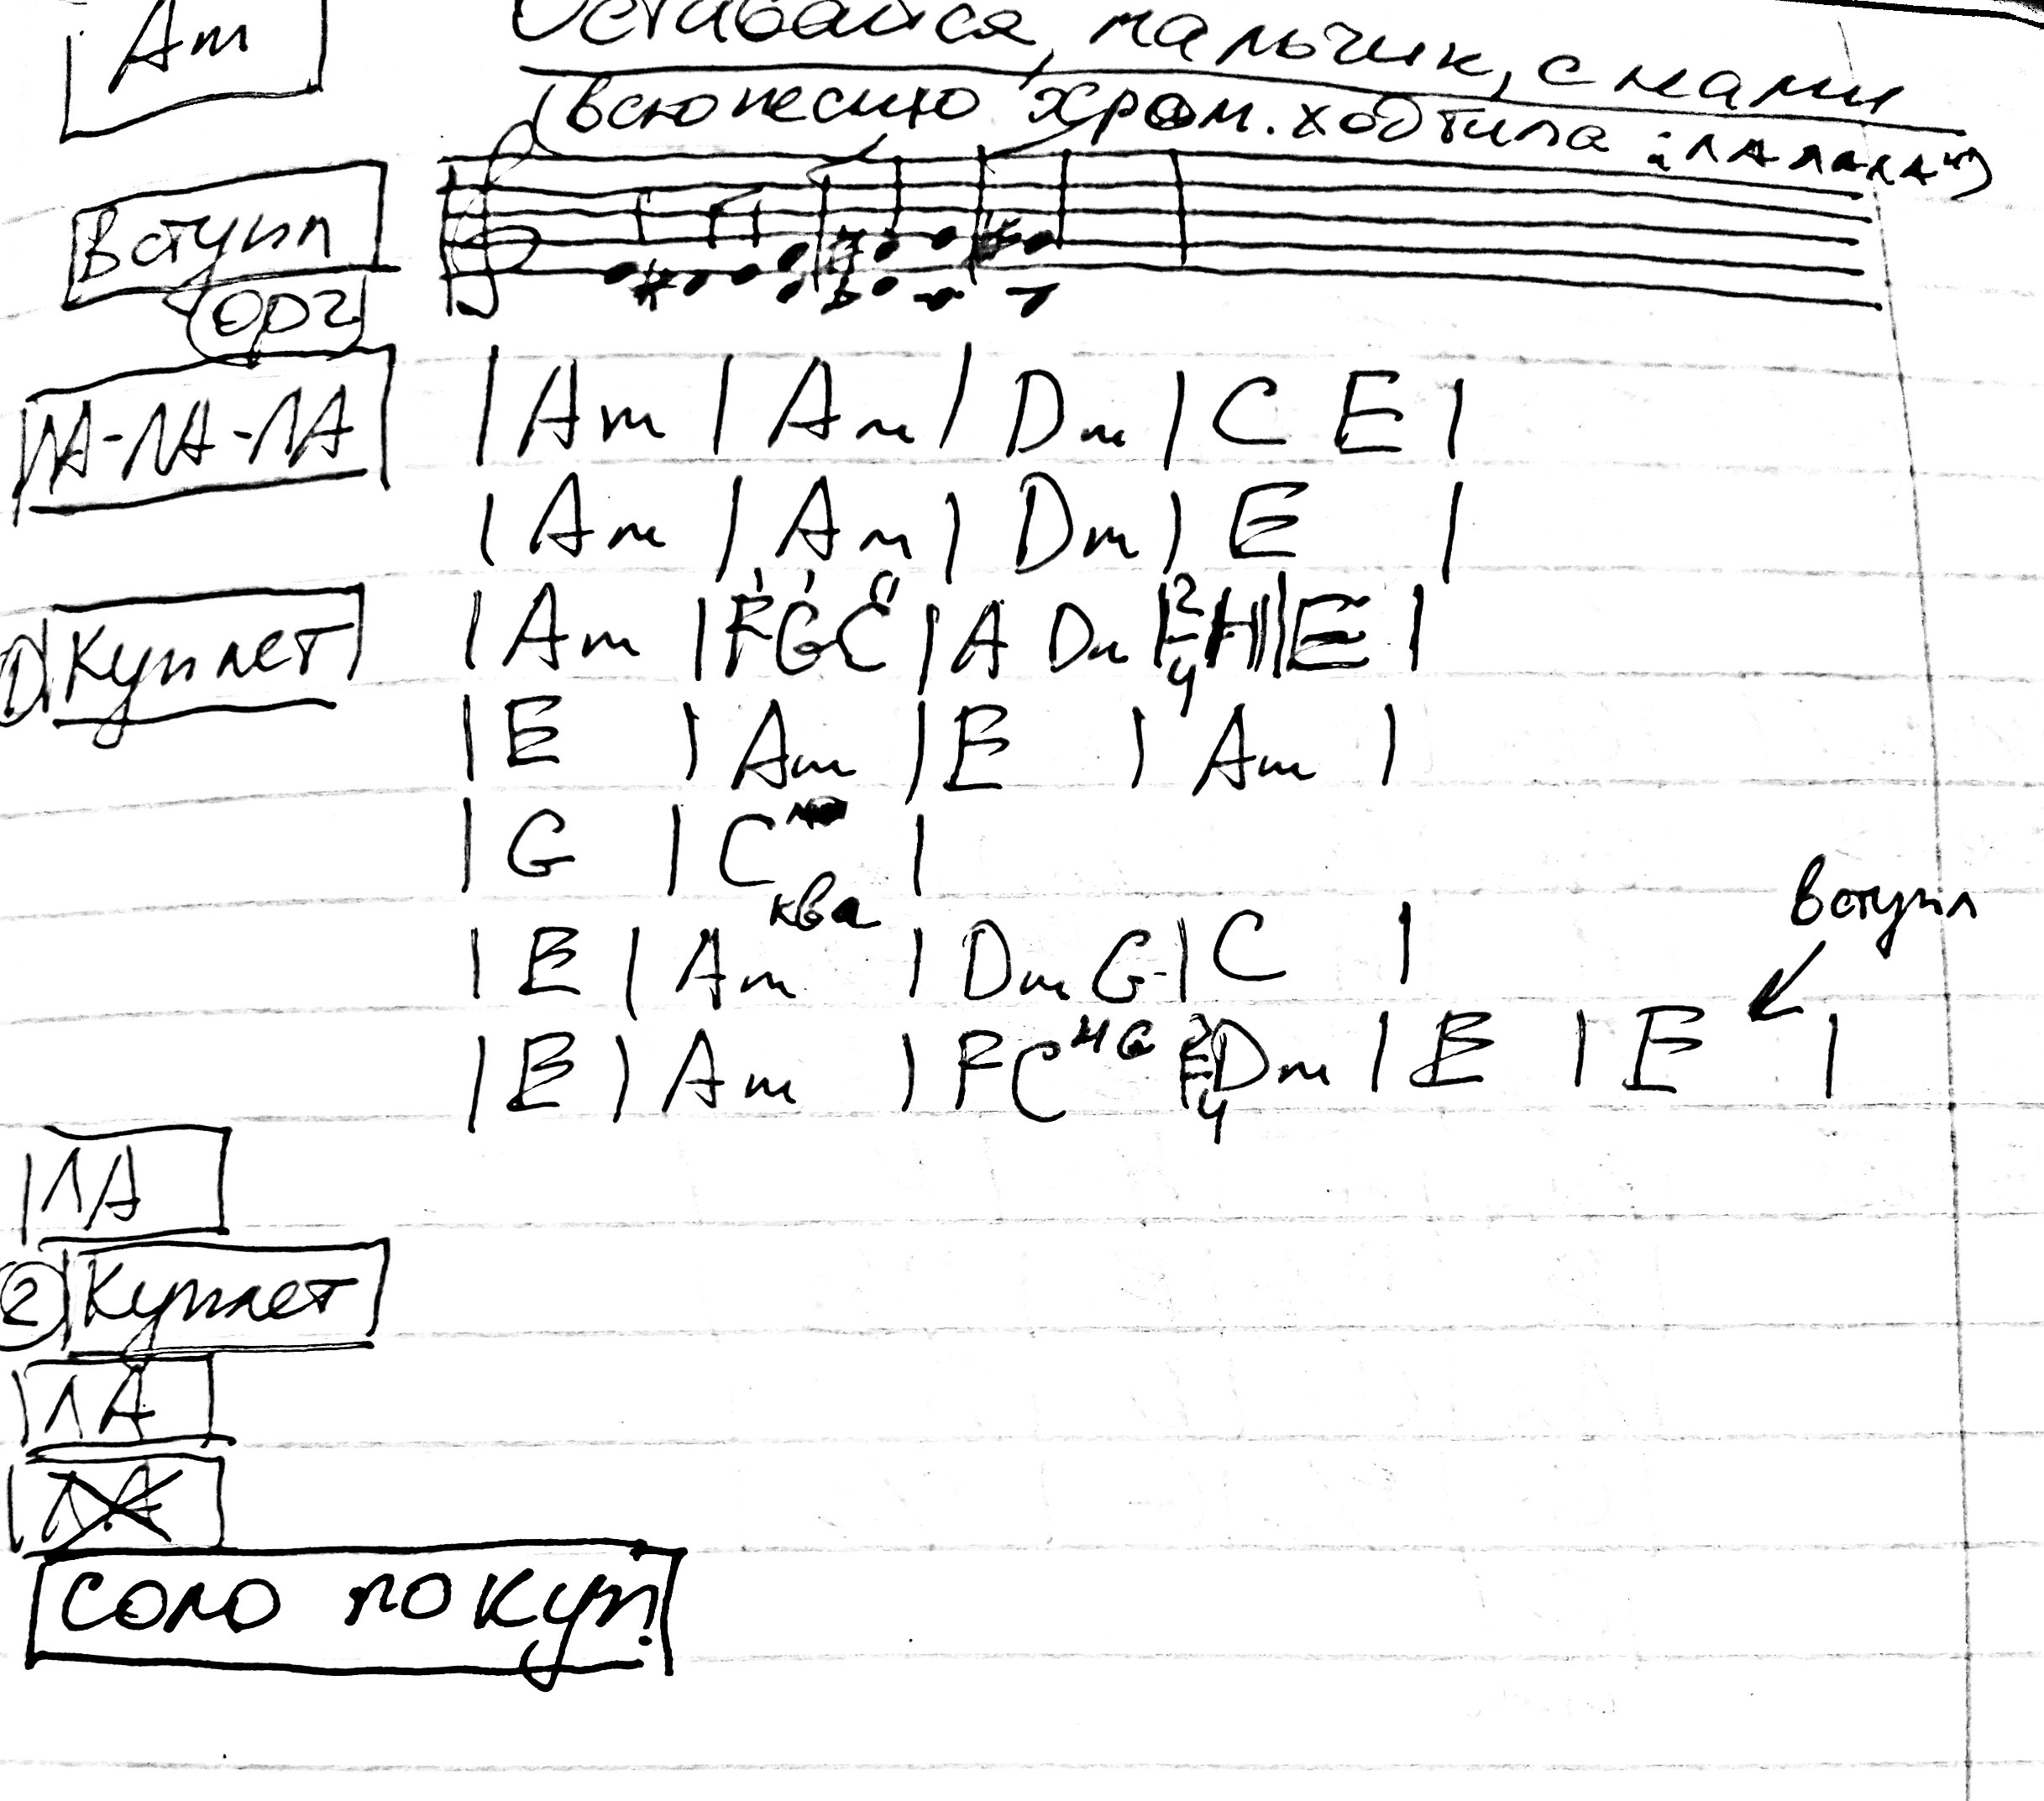 Am
Оставайся, мальчик, с нами
(всю песню хром. ход типа "ЛАЛАЛА")
Вступл
орг
ЛА-ЛА-ЛА | Am | Am | Dm | C E |
| Am | Am | Dm | E |
1) Куплет | Am | F G C | A Dm | 2/4 H | E |
| E | Am | E | Am |
| G | C |
ква
| E | Am | Dm G | C |
вступл
| E | Am | F C 3/4 Dm | E | E |
ЛА
2 Куплет
ЛА
ЛА
СОЛО ПО КУП!